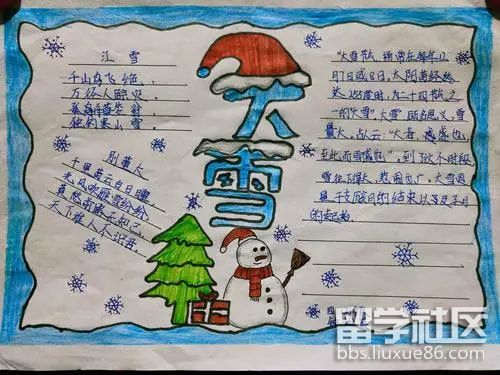 江雪
千山鸟飞绝，
万径人踪灭。
孤舟蓑笠翁，
独钓寒江雪。
别董大
千里黄云白日曛
北风吹雁雪纷纷
莫愁前路无知己
天下谁人不识君
大雪
"大雪"节气，通常在每年12
月7日或8日，太阳黄经
达255度时，为二十四节气之
一的"大雪"。大雪，顾名思义，雪
量大。古人云："大者，盛也，
至此而雪盛也"。到了这个时段
雪往往下得大、范围也广。大雪
是 的结束以及子月
的起始
留学社区
bbs.liuxue86.com